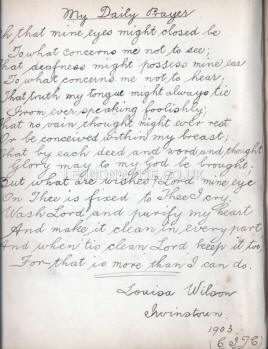 My Daily Prayer
h that mine eyes might closed be
To what concerns me not to see;
hat deafness might possiss mine ear
To what concerns me not to hear;
That truth my tongue might always tie
From ever speaking foolishly;
hat no vain thought might ever rest
Or be conceived within my breast;
That by each deed and word and thought
Glory may to my God be brought;
But what are wishes Lord mine eye
On Thee is fixed to Thee I cry,
Wash Lord and purify my heart
And make it clean in every part
And when tis clean Lord keep it too,
For that is more than I can do.
Louisa Wilson
Irvinestown.
1903